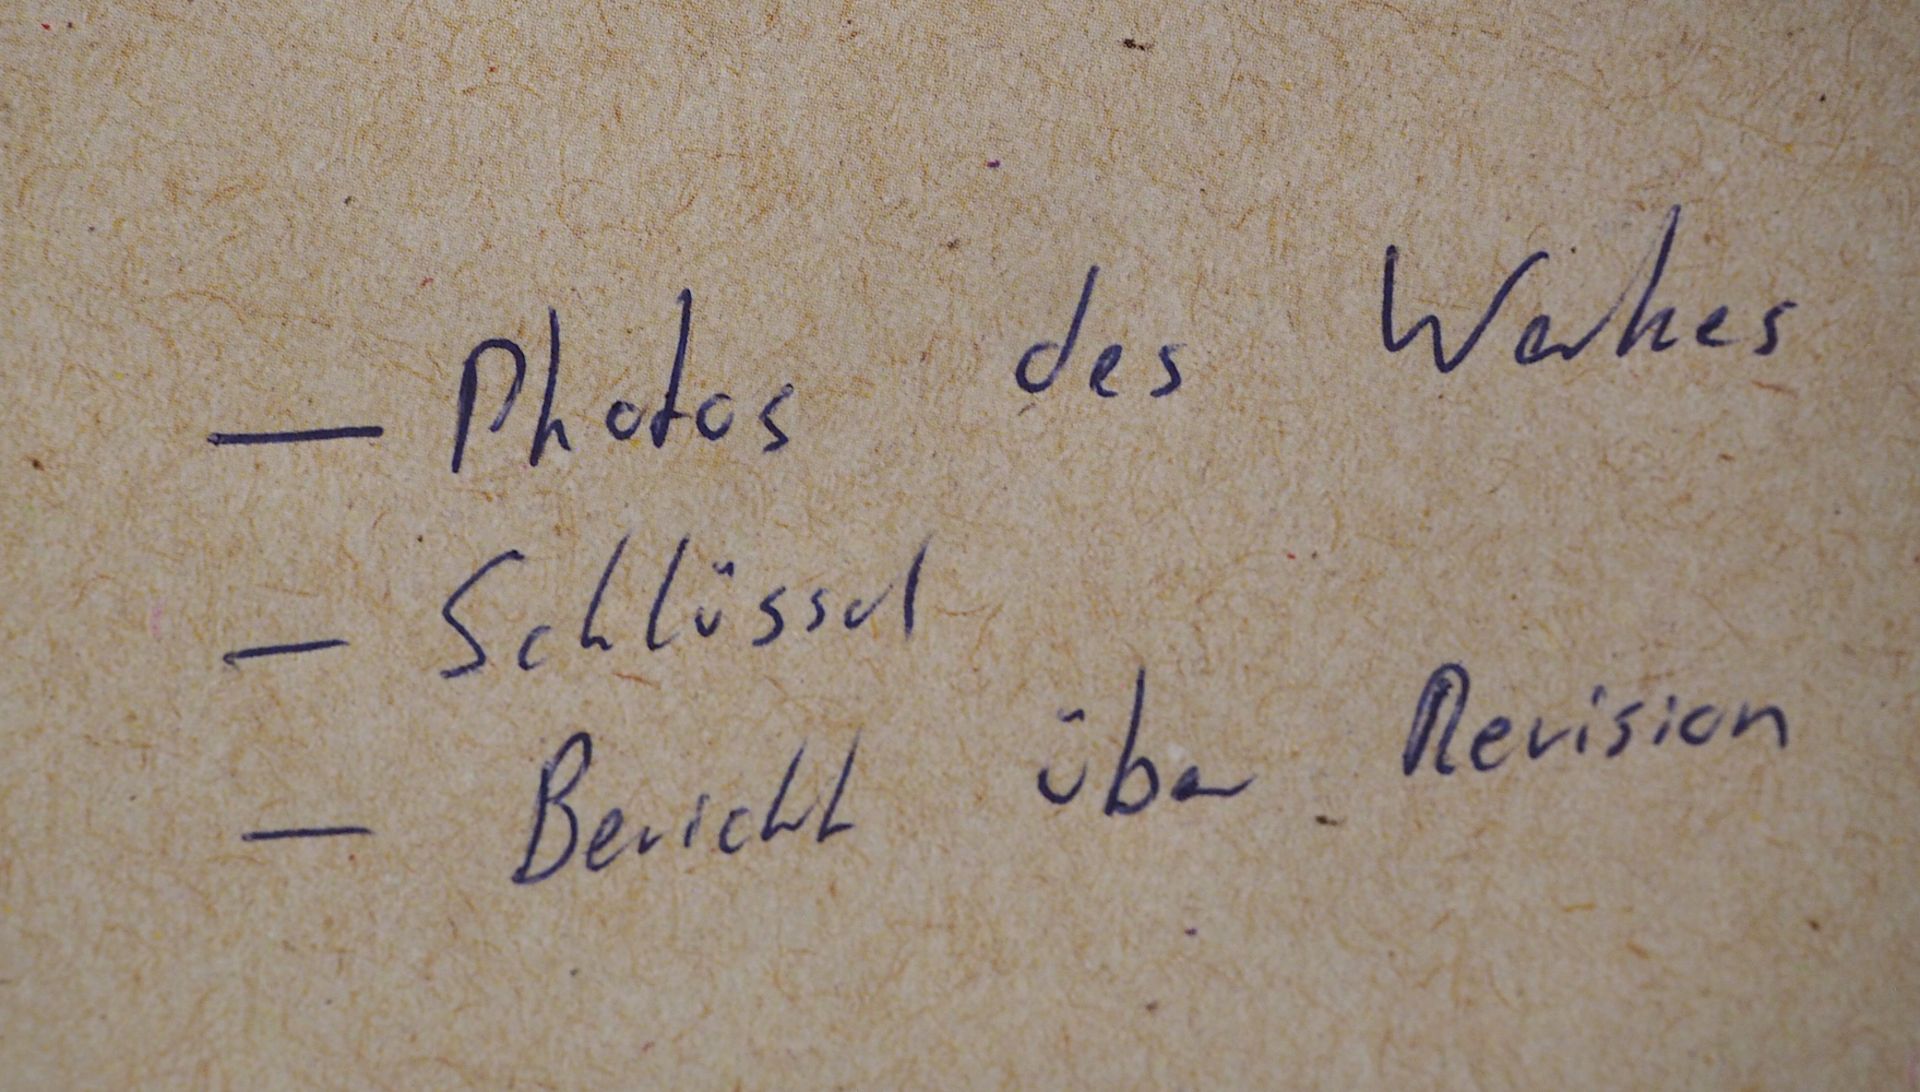 — Photos des Werkes
— Schlüssel
— Bericht über Revision